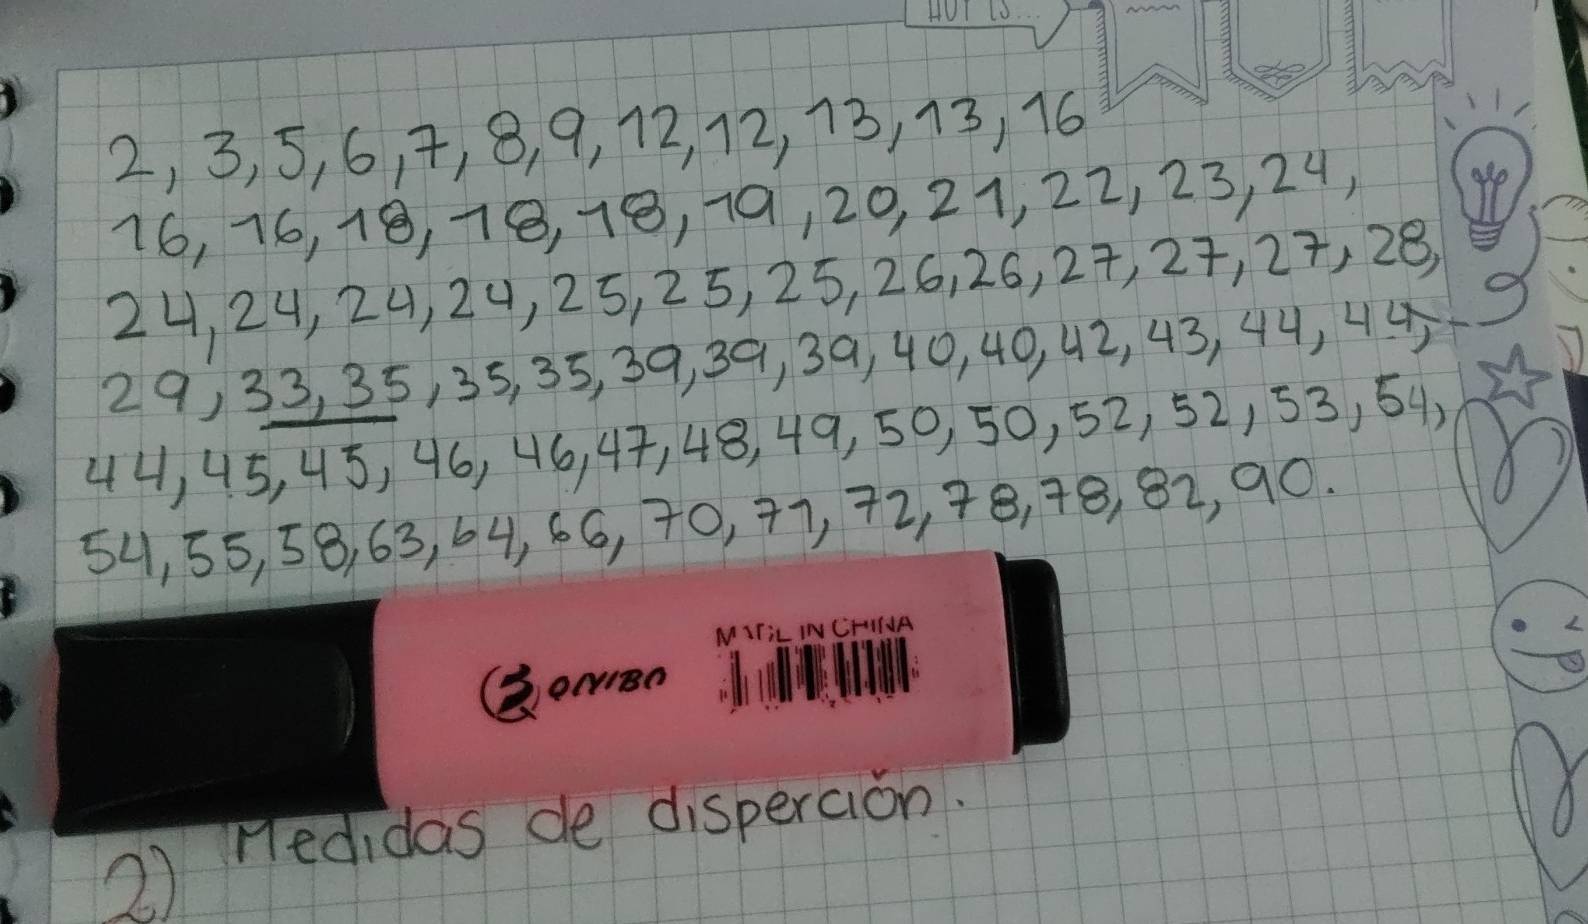 2, 3, 5, 6, 7, 8, 9, 12, 12, 13, 13, 16
16, 16, 18, 18, 18, 19, 20, 21, 22, 23, 24,
24, 24, 24, 24, 25, 25, 25, 26, 26, 27, 27, 27, 28,
29, 33, 35, 35, 35, 39, 39, 39, 40, 40, 42, 43, 44, 44,
44, 45, 45, 46, 46, 47, 48, 49, 50, 50, 52, 52, 53, 54,
54, 55, 58, 63, 64, 66, 70, 71, 72, 78, 78, 82, 90.
IN CHINA
2) Medidas de disperción.